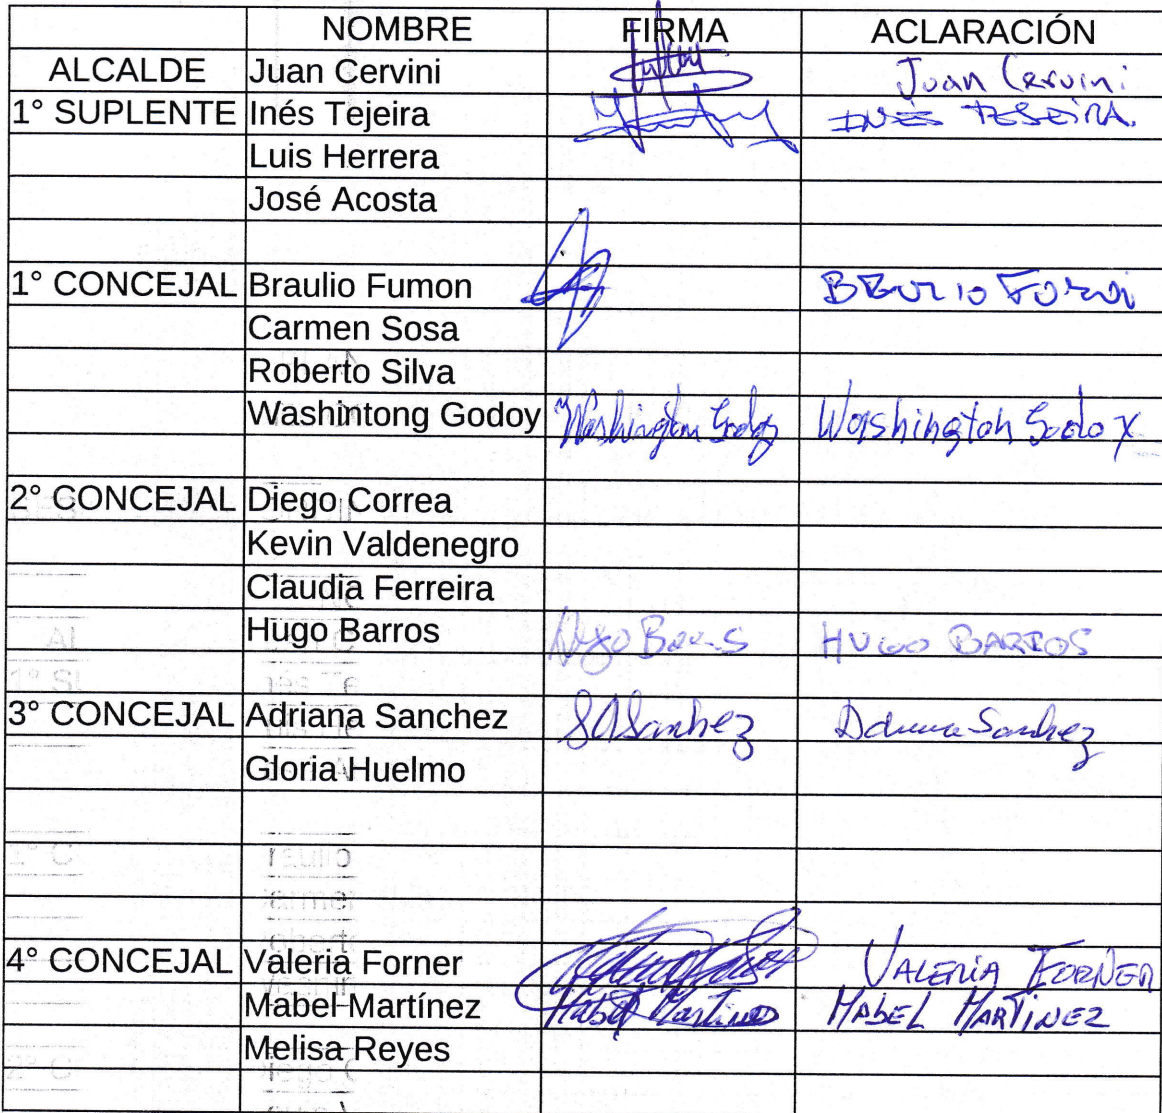 NOMBRE FIRMA ACLARACIÓN
ALCALDE Juan Cervini Juan Cervini
1° SUPLENTE Inés Tejeira INÉS TESEIRA.
Luis Herrera
José Acosta
1° CONCEJAL Braulio Fumon
Carmen Sosa
Roberto Silva
Washintong Godoy Washington Godoy Washington Godoy
2° CONCEJAL Diego Correa
Kevin Valdenegro
Claudia Ferreira
Hugo Barros Hugo Barros HUGO BARROS
3° CONCEJAL Adriana Sanchez SASanchez Adriana Sanchez
Gloria Huelmo
4° CONCEJAL Valeria Forner VALERIA FORNER
Mabel Martínez Mabel Martinez MABEL MARTINEZ
Melisa Reyes